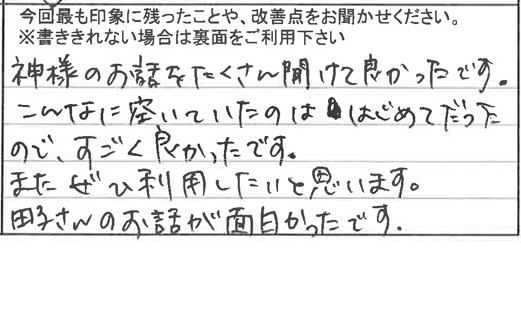 今回最も印象に残ったことや、改善点をお聞かせください。
※書ききれない場合は裏面をご利用下さい
神様のお話をたくさん聞けて良かったです。
こんなに空いていたのははじめてだった
ので、すごく良かったです。
またぜひ利用したいと思います。
田子さんのお話が面白かったです.